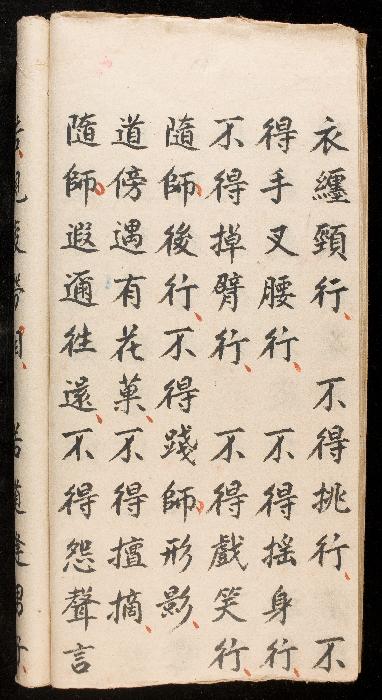 衣纏頸行 不得挑行 不
得手叉腰行 不得搖身行
不得掉臂行 不得戲笑行
隨師後行不得踐師形影
道傍遇有花菓不得擅摘
隨師遐邇往還不得怨聲言